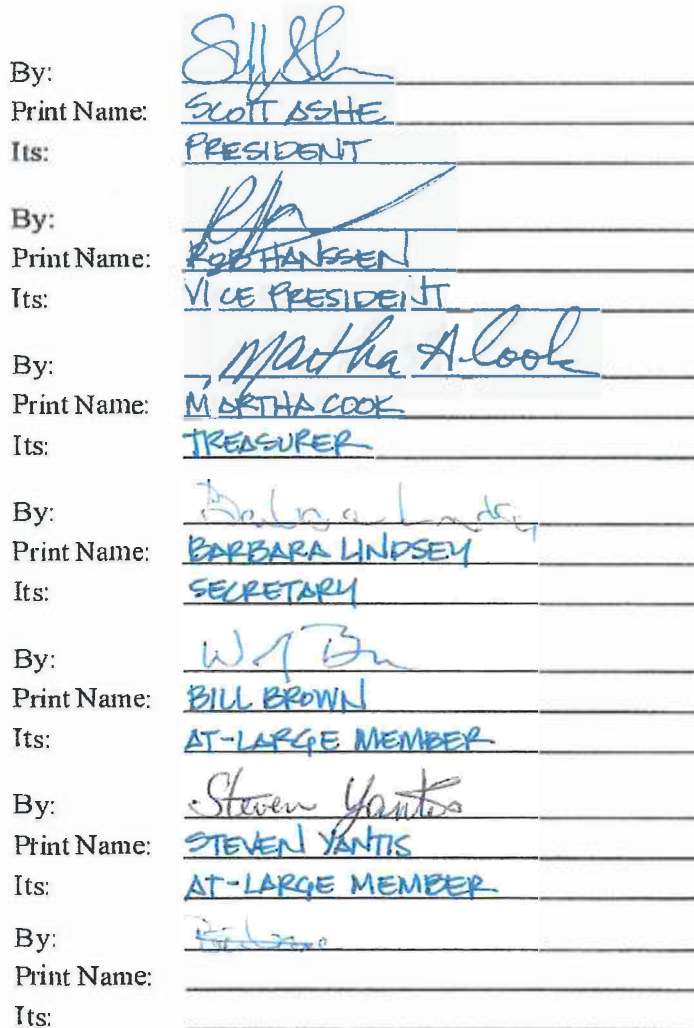 By:
Print Name: SCOTT ASHE
Its: PRESIDENT
By:
Print Name: ROB HANSSEN
Its: VICE PRESIDENT
By: Martha A. Cook
Print Name: MARTHA COOK
Its: TREASURER
By: Barbara Lindsey
Print Name: BARBARA LINDSEY
Its: SECRETARY
By:
Print Name: BILL BROWN
Its: AT-LARGE MEMBER
By: Steven Yantis
Print Name: STEVEN YANTIS
Its: AT-LARGE MEMBER
By:
Print Name:
Its: